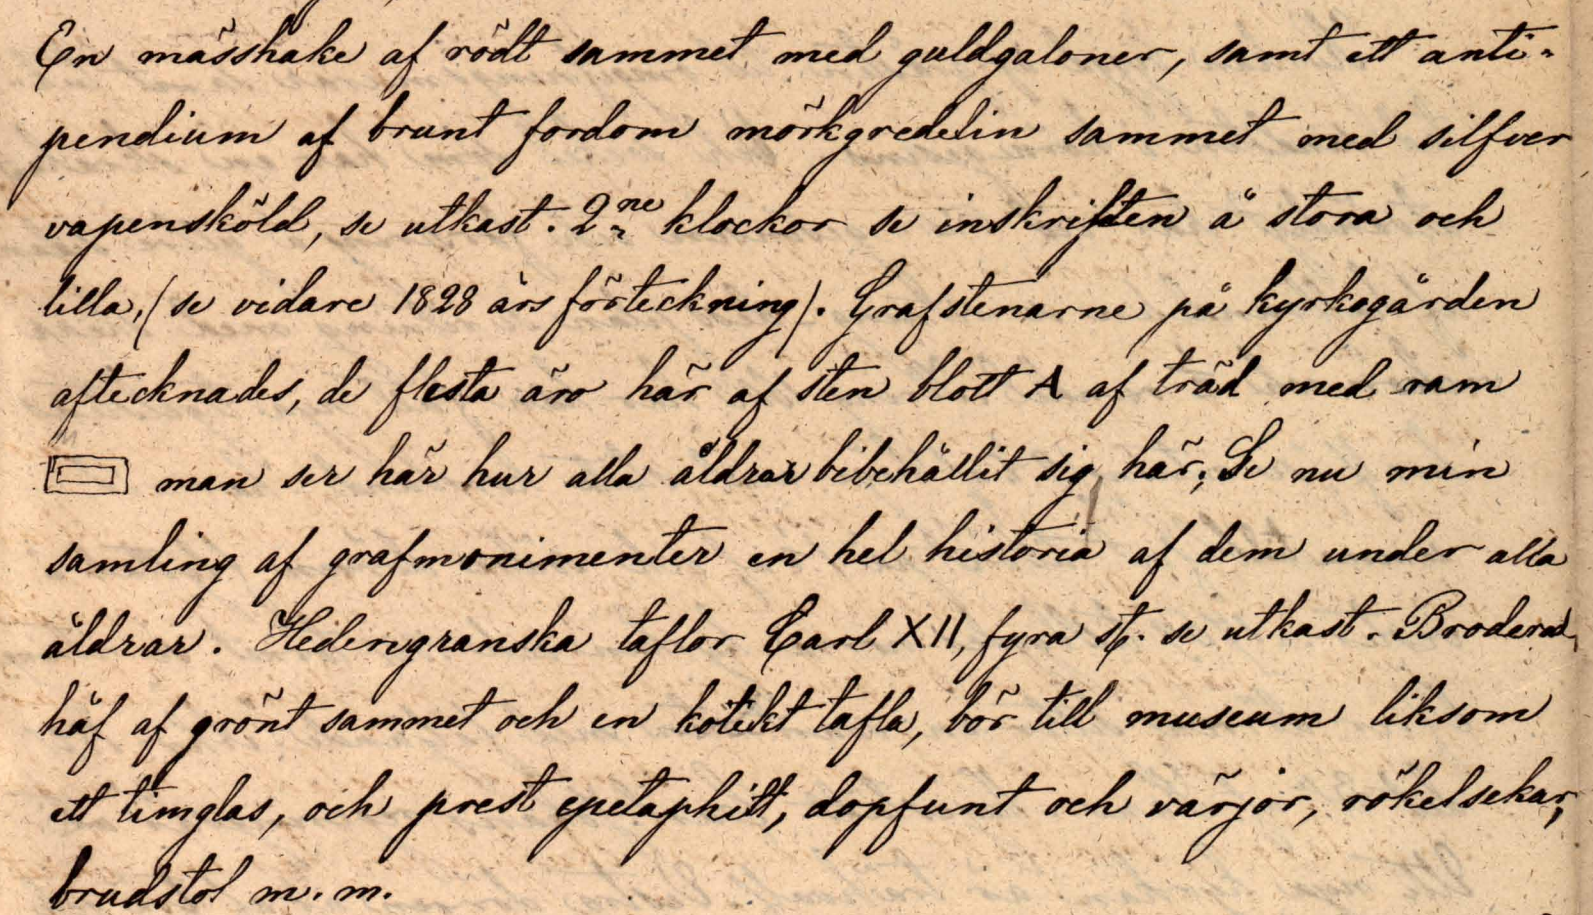 En mässhake af rödt sammet med guldgaloner, samt ett anti-
pendium af brunt fordom mörkgredelin sammet med silfver
vapensköld, se utkast. 2ne klockor se inskriften å stora och
lilla, (se vidare 1828 års förteckning). Grafstenarne på kyrkogården
aftecknades, de flesta äro här af sten blott A af träd med ram
man ser här hur alla åldrar bibehållit sig här; Se nu min
samling af grafmonimenter en hel historia af dem under alla
åldrar. Hedengranska taflor Carl XII, fyra st. se utkast. Broderad
håf af grönt sammet och en tafla, bör till museum liksom
ett timglas, och prest epetaphitt, dopfunt och värjor, rökelsekar,
brudstol m. m.